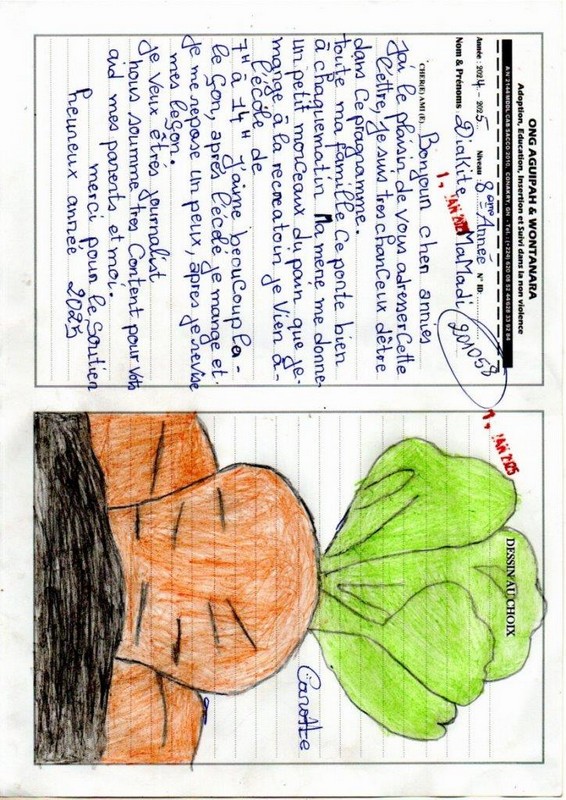 ONG AGUIPAH & WONTANARA
Adoption, Education, Insertion et Suivi dans la non violence
Année : 2024 - 2025 Niveau : 8eme Année N° ID: 201058
Nom & Prénoms Diakite MaMadi
1, JAN 2025
CHER(E) AMI (E), Bonjour cher amies
J'ai le plaisir de vous adresser Cette
lettre, Je suis tres chanceux d'être
dans Ce programme.
toute ma famille Ce porte bien
à chaque matin Ma mère me donne
un petit morceaux du pain que je
mange à la recreatoin je Vien à-
l'école de
7H à 14H j'aime beaucoup la-
le Gon, après l'école je mange et
Je me repose un peux, après je revise
mes leçon.
Je veux êtres journalist
nous somme tres Content pour vots
aid mes parents et moi.
merci pour le Soutien
heureux année 2025
1, JAN 2025
DESSIN AU CHOIX
Carotte